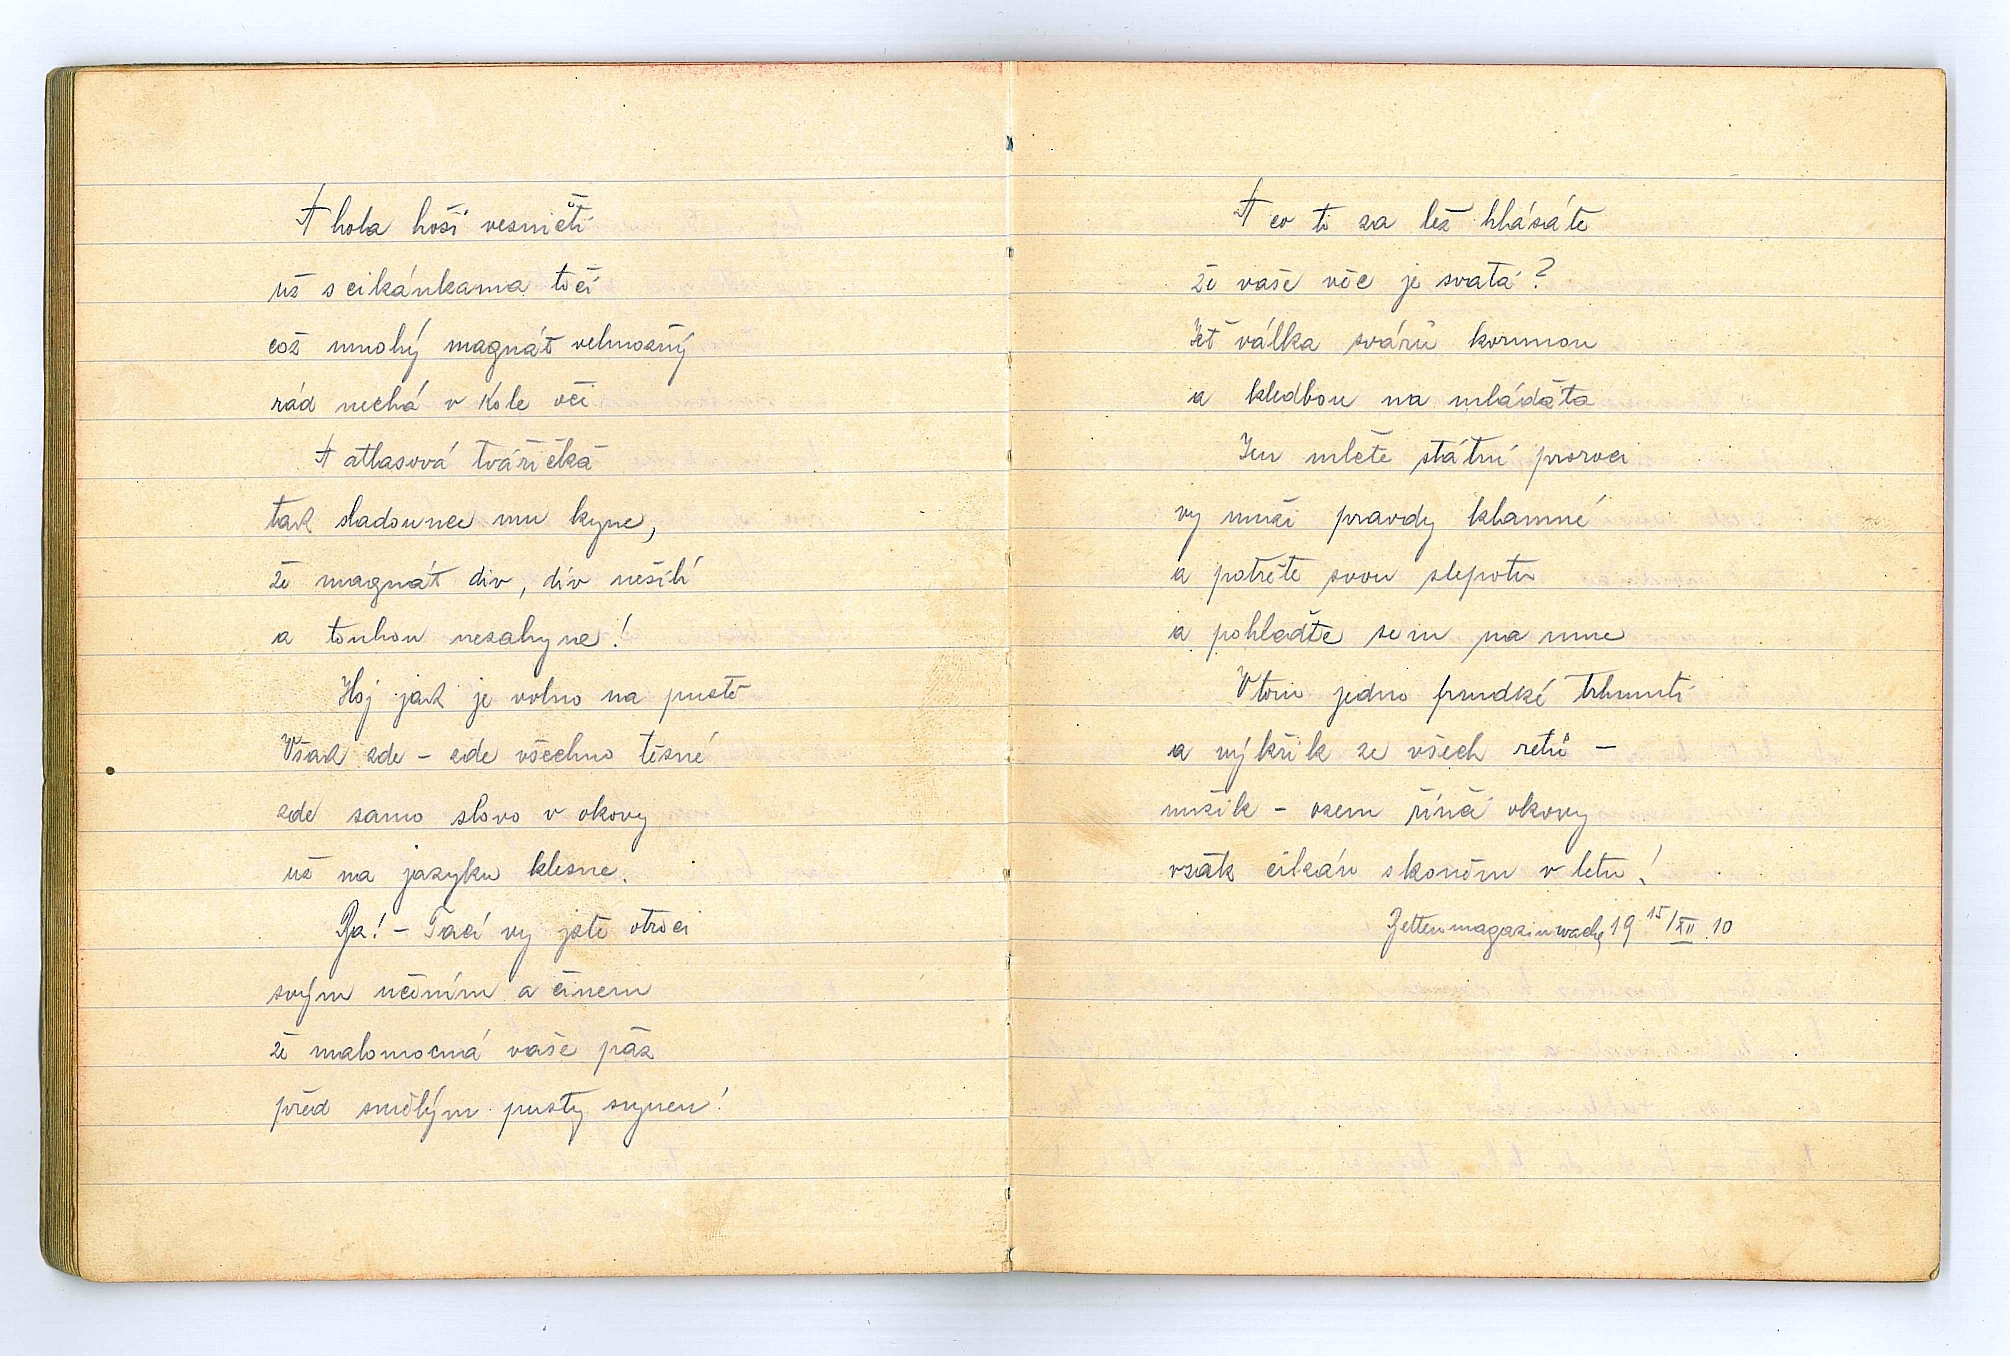 A hola hoši vesničtí
už s cikánkama točí
což mnohý magnát velmožný
rád nechá v kole oči
A atlasová tvářička
tak sladounce mu kyne,
že magnát div, div nešílí
a touhou nezahyne!
Hoj jak je volno na pustě
Však zde – zde všechno těsné
zde samo slovo v okovy
už na jazyku klesne.
Pja! – Tací vy jste otroci
svým učením a činem
že malomocná vaše páž
před smělým pusty synem!
A co ti za lež hlásáte
že vaše věc je svatá?
Jeť válka svárů korunou
a kledbou na mláďata
Jen mlčte státní proroci
vy muži pravdy klamné
a potřete svou slepotu
a pohleďte sem na mne
Vtom jedno prudké trhnutí
a výkřik ze všech retů –
mžik – ozem říňčí okovy
však cikán skončen v letu!
19 15/XII 10